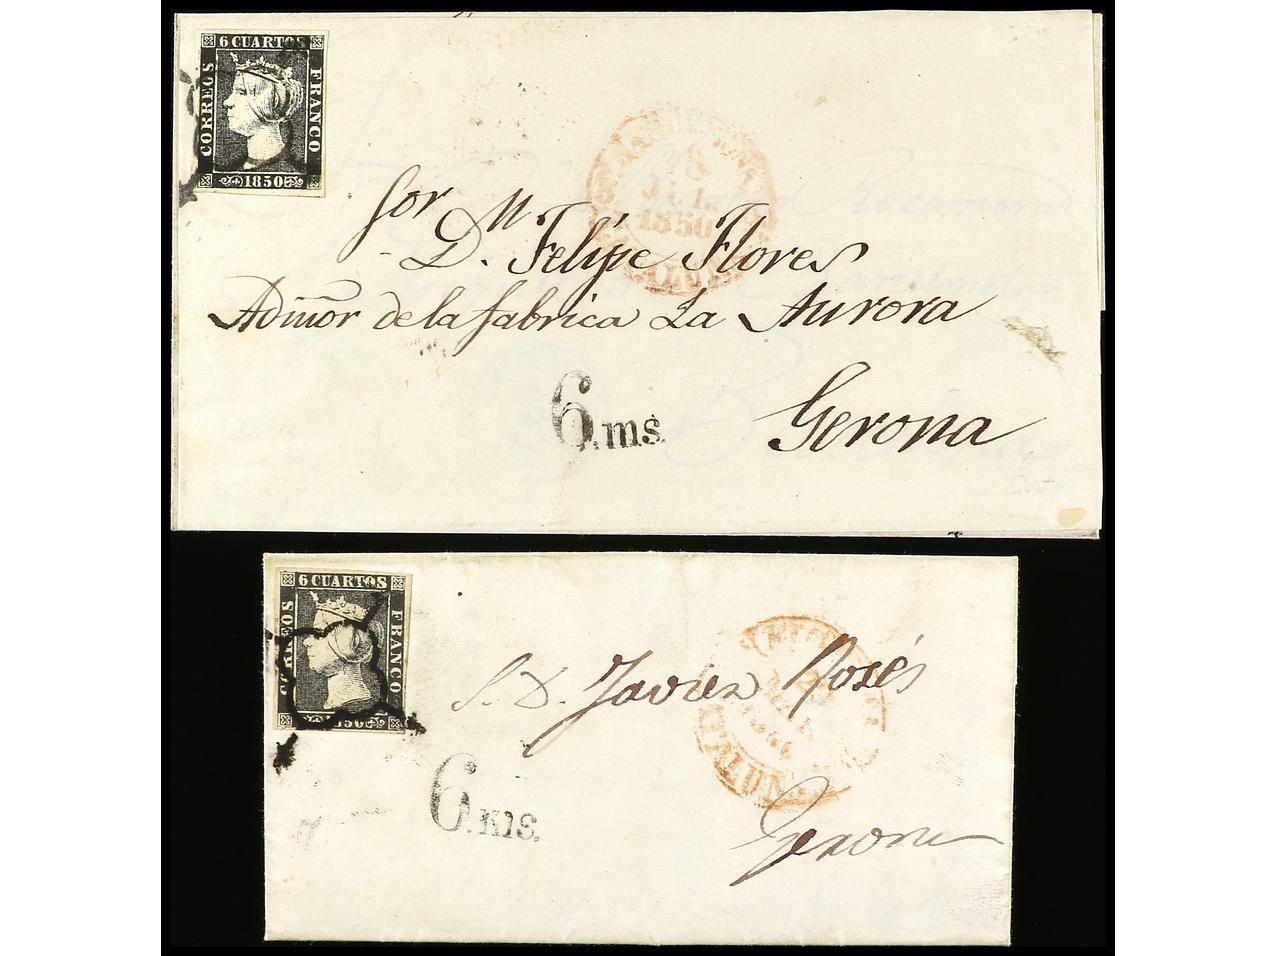 6 CUARTOS
CORREOS
FRANCO
1850
JUL.
1850
Sor
D. Felipe Flores
Admor de la fabrica La Aurora
6.ms.
Gerona
6 CUARTOS
CORREOS
FRANCO
1850
S. D. Javier Rosés
6.ms.
Gerona